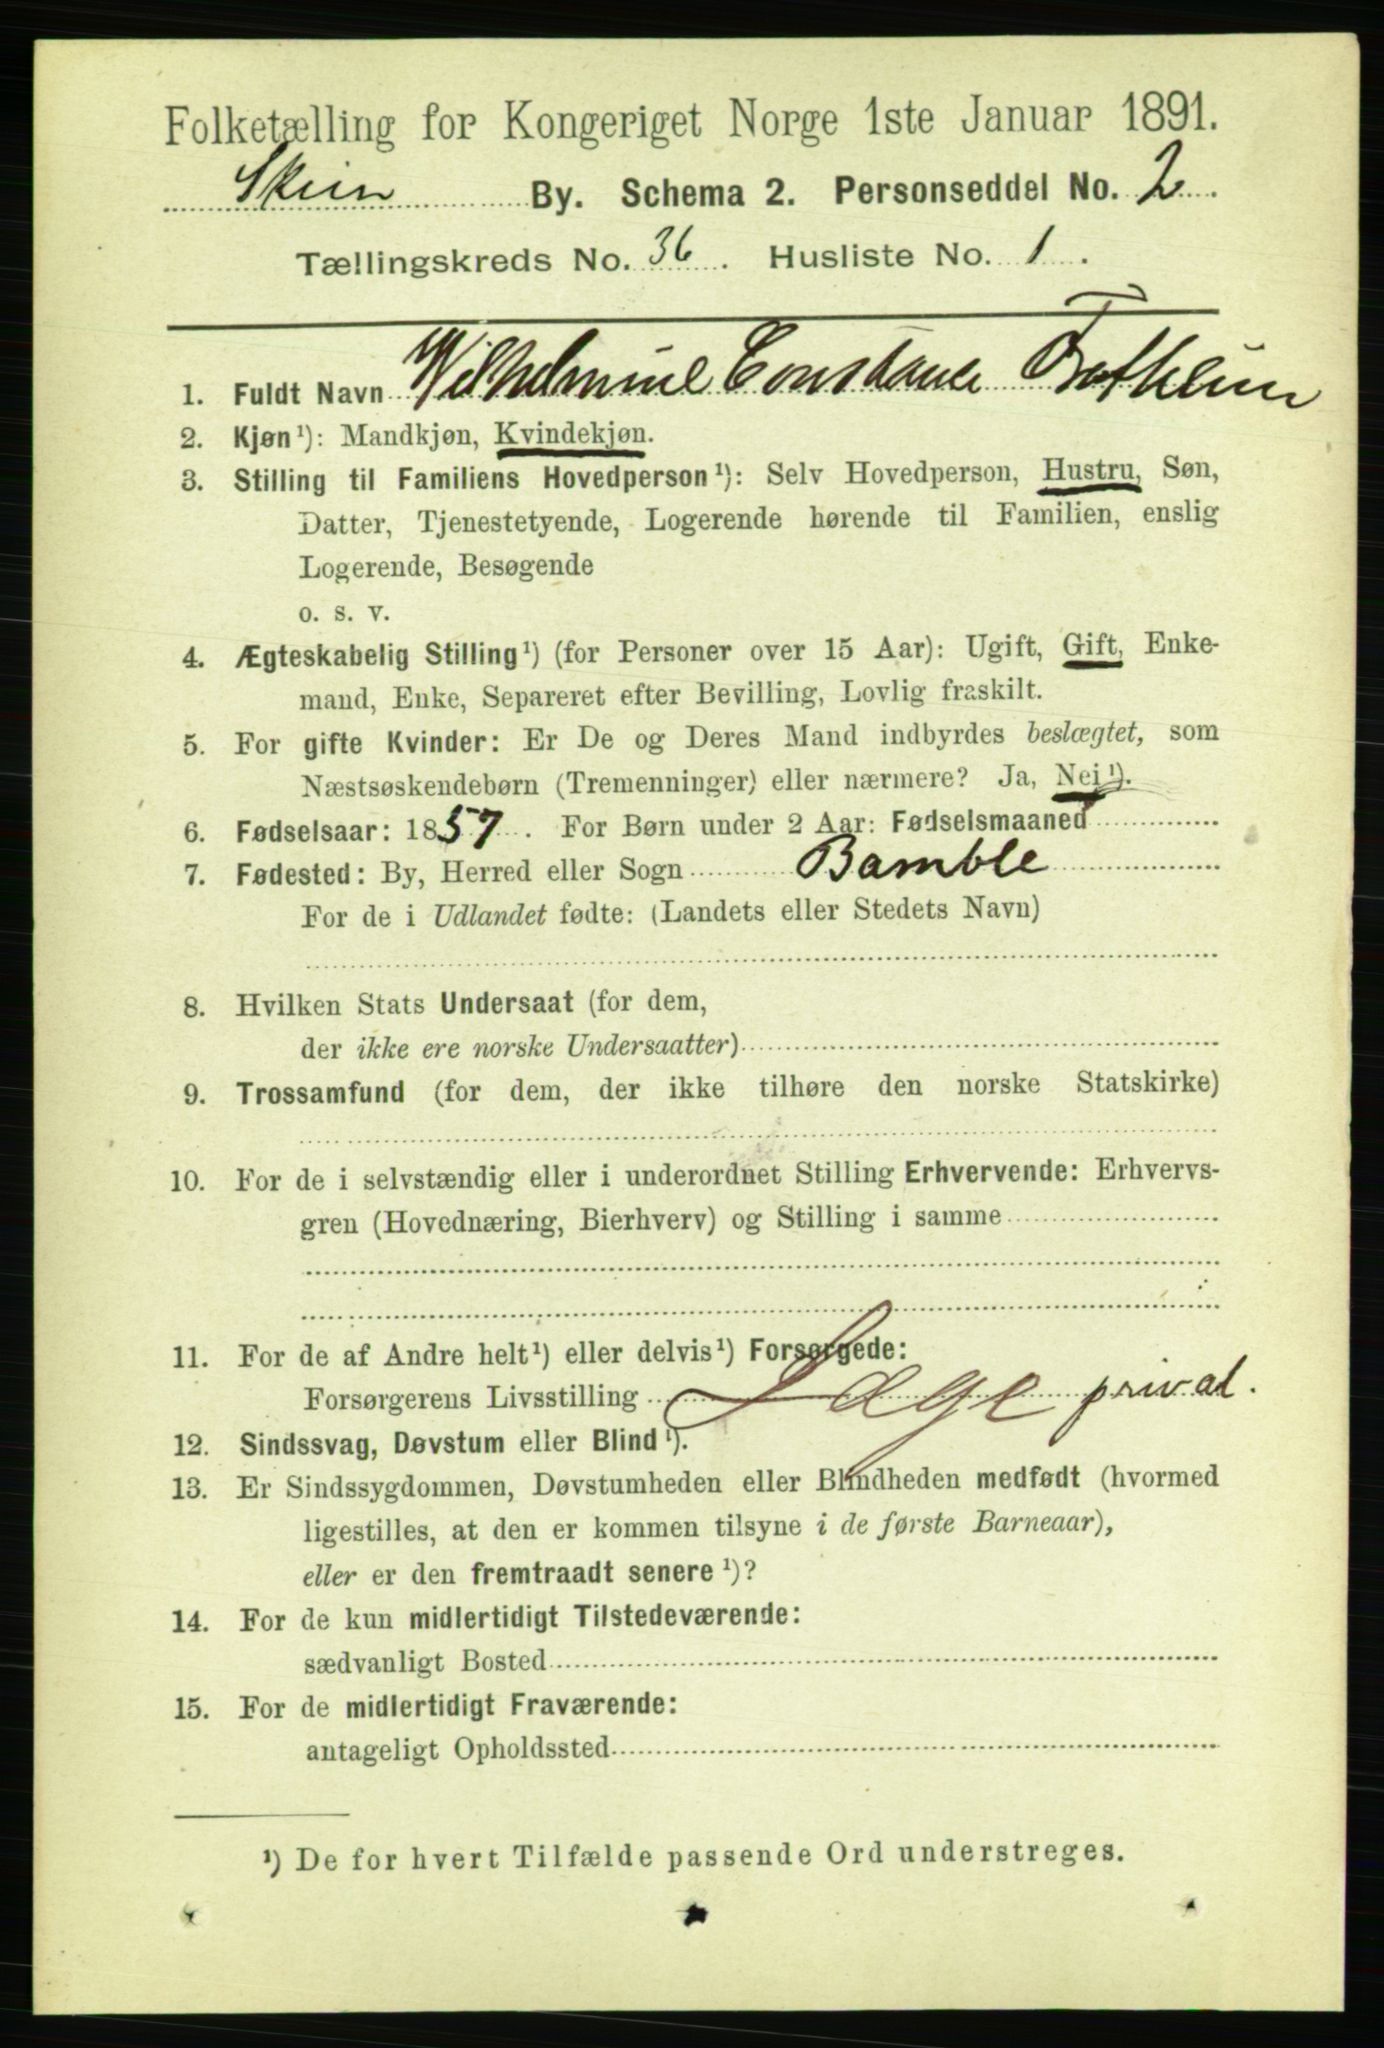 Folketælling for Kongeriget Norge 1ste Januar 1891.
Skien By. Schema 2. Personseddel No. 2.
Tællingskreds No. 36. Husliste No. 1.
1. Fuldt Navn Wilhelmine Constance
2. Kjøn¹): Mandkjøn, Kvindekjøn.
3. Stilling til Familiens Hovedperson¹): Selv Hovedperson, Hustru, Søn,
Datter, Tjenestetyende, Logerende hørende til Familien, enslig
Logerende, Besøgende
o. s. v.
4. Ægteskabelig Stilling¹) (for Personer over 15 Aar): Ugift, Gift, Enke-
mand, Enke, Separeret efter Bevilling, Lovlig fraskilt.
5. For gifte Kvinder: Er De og Deres Mand indbyrdes beslægtet, som
Næstsøskendebørn (Tremenninger) eller nærmere? Ja, Nei¹).
6. Fødselsaar: 1857. For Børn under 2 Aar: Fødselsmaaned
7. Fødested: By, Herred eller Sogn Bamble
For de i Udlandet fødte: (Landets eller Stedets Navn)
8. Hvilken Stats Undersaat (for dem,
der ikke ere norske Undersaatter)
9. Trossamfund (for dem, der ikke tilhøre den norske Statskirke)
10. For de i selvstændig eller i underordnet Stilling Erhvervende: Erhvervs-
gren (Hovednæring, Bierhverv) og Stilling i samme
11. For de af Andre helt¹) eller delvis¹) Forsørgede:
Forsørgerens Livsstilling Læge privat.
12. Sindssvag, Døvstum eller Blind¹).
13. Er Sindssygdommen, Døvstumheden eller Blindheden medfødt (hvormed
ligestilles, at den er kommen tilsyne i de første Barneaar),
eller er den fremtraadt senere¹)?
14. For de kun midlertidigt Tilstedeværende:
sædvanligt Bosted
15. For de midlertidigt Fraværende:
antageligt Opholdssted
¹) De for hvert Tilfælde passende Ord understreges.